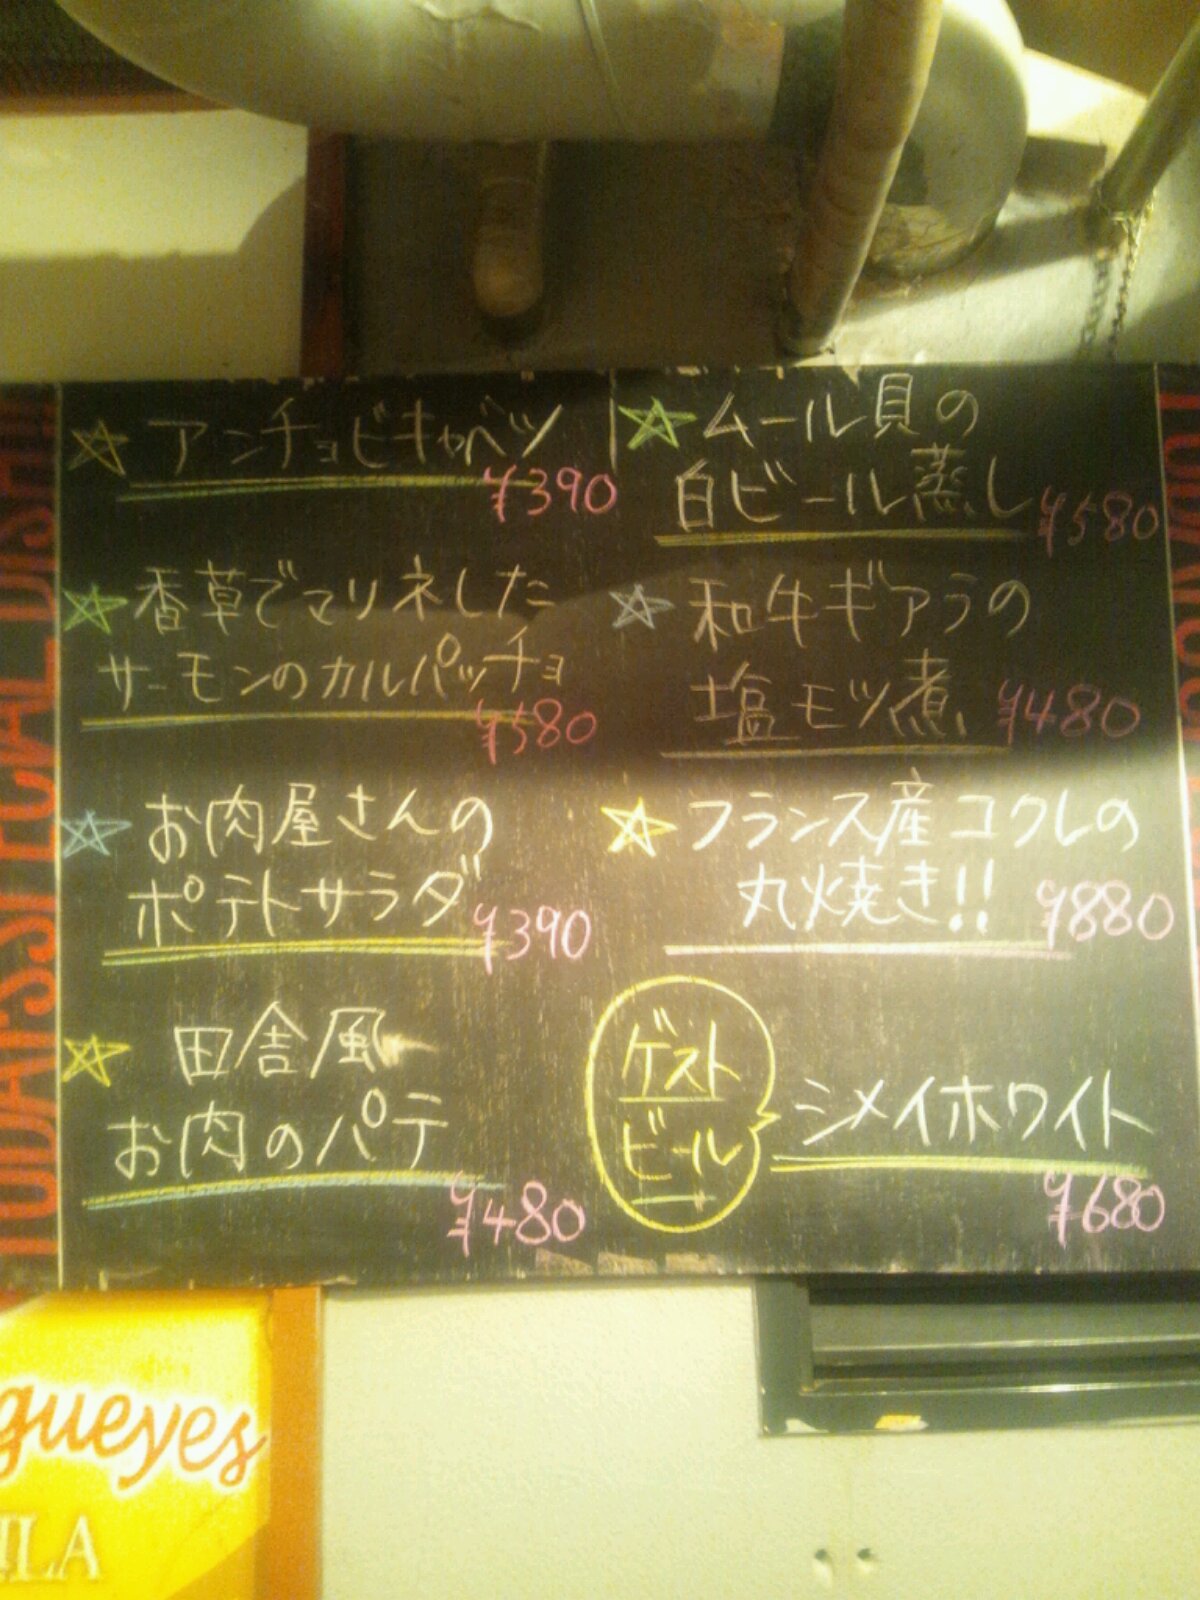 アンチョビキャベツ
¥390
香草でマリネした
サーモンのカルパッチョ
¥580
お肉屋さんの
ポテトサラダ
¥390
田舎風
お肉のパテ
¥480
ムール貝の
白ビール蒸し
¥580
和牛ギアラの
塩モツ煮
¥480
フランス産コクレの
丸焼き!!
¥880
ゲスト
ビール
シメイホワイト
¥680
gueyes